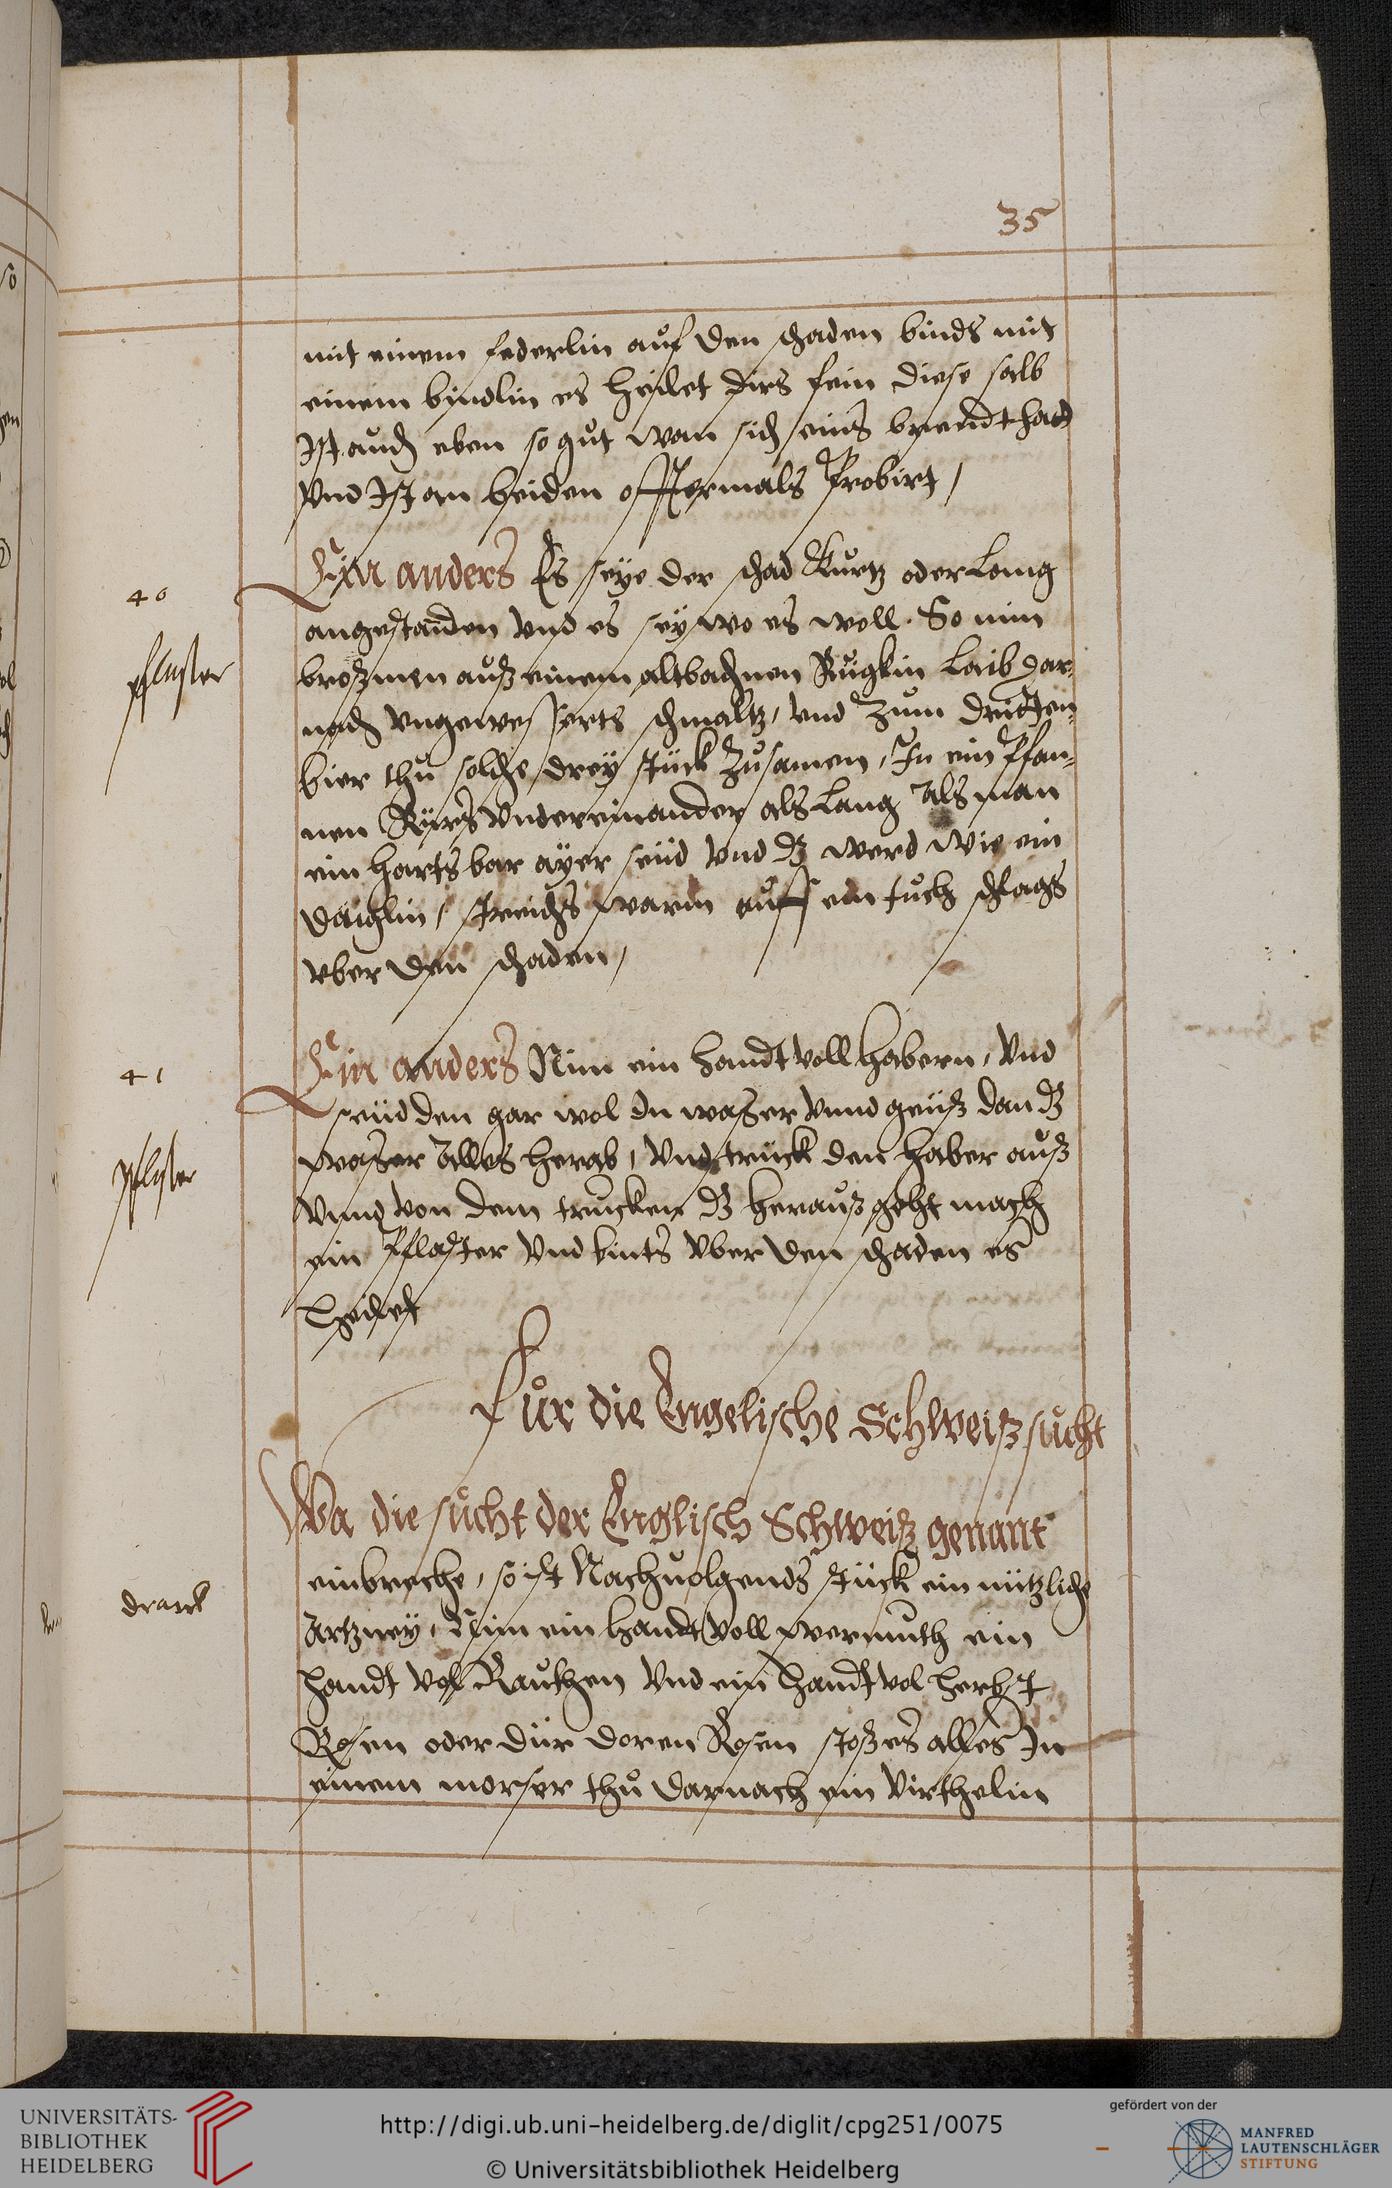 35
mit einem federlin auf den schaden binds mit
einem bindlin es heilet dirs fein diese salb
Ist auch eben so gut wan sich eins brendt hat
Vnd Ist an beiden offtermals Probirt /
40
pflaster
Ein anders Es seye der schad Kurtz oder Lang
angestanden Vnd es sey wo es woll. So nim
broßmen auß einem altbachnen Rugkin Laib dar-
nach Vngewesserts schmaltz, Vnd zum dritten
bier thu solche drey stück zusamen, In ein Pfan-
nen Rürs Vndereinander als Lang Als man
ein harts bar ayer seüd Vnd dz werd wie ein
daiglin / streichs warm auff ein tuch schlags
vber den schaden /
41
pflaster
Ein anders Nim ein handt voll habern, Vnd
seüd den gar wol In waßer Vnnd geüß dan dz
waßer Alles herab, Vnd trück den haber auß
Vnnd von dem trucken dz herauß geht mach
ein Pflaster Vnd bints Vber den schaden es
heilet
Für die Engelische Schweiß sucht
Wa die sucht der Englisch Schweiß genant
dranck
einbreche, so ist Nachuolgends stück ein nützliche
Artzney, Nim ein handt Voll wermuth ein
handt vol Rauthen Vnd ein handt vol herbst
Rosen oder dür doren Rosen stoß es alles In
einem morser thu darnach ein Virthelin
UNIVERSITÄTS-
BIBLIOTHEK
HEIDELBERG
http://digi.ub.uni-heidelberg.de/diglit/cpg251/0075
© Universitätsbibliothek Heidelberg
gefördert von der
MANFRED
LAUTENSCHLÄGER
STIFTUNG